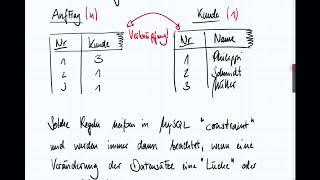 Auftrag (n)
Kunde (1)
Verknüpfung!
Nr Kunde
Nr Name
1 3
1 Philippi
2 1
2 Schmidt
3 1
3 Müller
Solche Regeln heißen in MySQL "constraint"
und werden immer dann beachtet, wenn eine
Veränderung der Datensätze eine "Lücke" oder